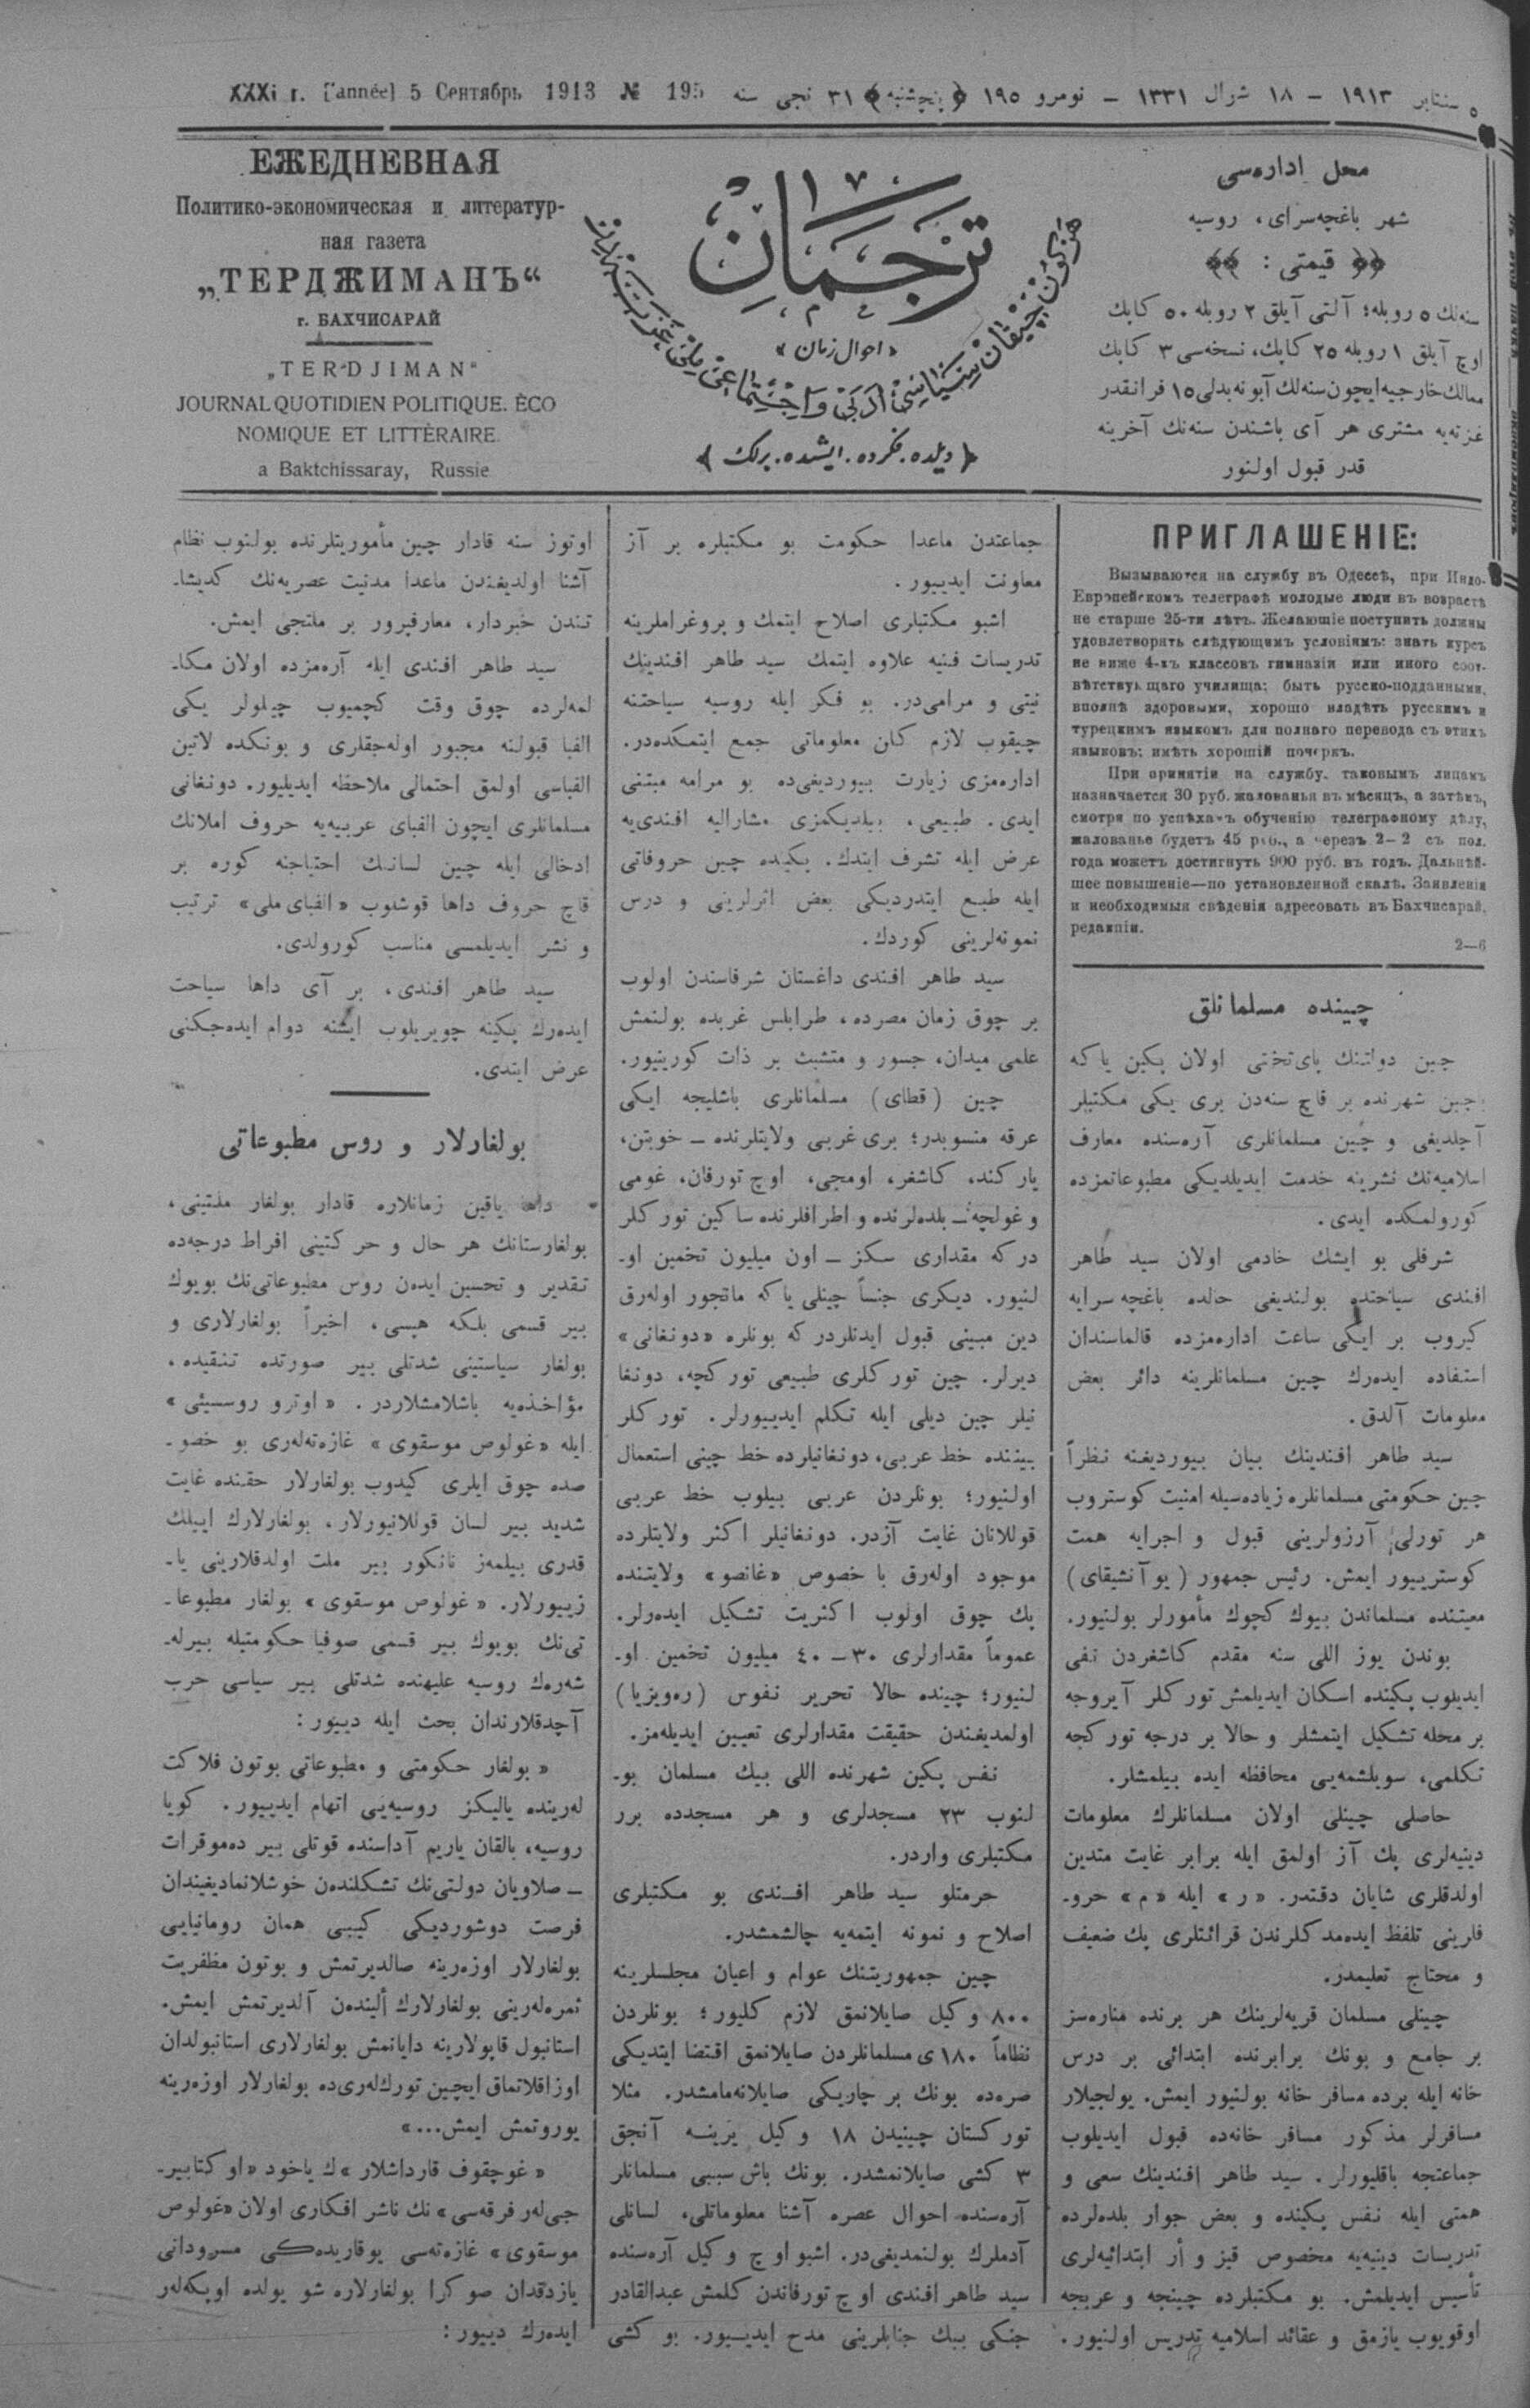 XXXi г. [année] 5 Сентябрь 1913 № 195
٥ سنتابر ١٩١٣ – ١٨ شوال ١٣٣١ – نومرو ١٩٥ ﴿پنچشنبه﴾ ٣١ نجی سنه
ЕЖЕДНЕВНАЯ
Политико-экономическая и литератур-
ная газета
„ТЕРДЖИМАНЪ“
г. БАХЧИСАРАЙ
„TERDJIMAN“
JOURNAL QUOTIDIEN POLITIQUE. ÈCO
NOMIQUE ET LITTÈRAIRE.
a Baktchissaray, Russie
ترجمان
«احوال زمان»
هر كون چیقان سیاسی ادبی و اجتماعی ملی غزته‌در
﴿دیلده. فكرده. ایشده. برلك﴾
محل اداره‌سی
شهر باغچه‌سرای، روسیه
﴿﴿ قیمتی : ﴾﴾
سنه‌لك ٥ روبله؛ آلتی آیلق ٢ روبله ٥٠ كاپك
اوچ آیلق ١ روبله ٢٥ كاپك، نسخه‌سی ٣ كاپك
ممالك خارجیه ایچون سنه‌لك آبونه بدلی ١٥ فرانقدر
غزته‌یه مشتری هر آی باشندن سنه‌نك آخرینه
قدر قبول اولنور
ПРИГЛАШЕНІЕ:
Вызываются на службу въ Одессѣ, при Индо-
Европейскомъ телеграфѣ молодые люди въ возрастѣ
не старше 25-ти лѣтъ. Желающіе поступить должны
удовлетворять слѣдующимъ условіямъ: знать курсъ
не ниже 4-хъ классовъ гимназіи или иного соот-
вѣтствующаго училища; быть русско-подданными,
вполнѣ здоровыми, хорошо владѣть русскимъ и
турецкимъ языкомъ для полнаго перевода съ этихъ
языковъ; имѣть хорошій почеркъ.
При принятіи на службу. таковымъ лицамъ
назначается 30 руб. жалованья въ мѣсяцъ, а затѣмъ,
смотря по успѣхамъ обученію телеграфному дѣлу,
жалованье будетъ 45 руб., а черезъ 2–2 съ пол.
года можетъ достигнуть 900 руб. въ годъ. Дальнѣй-
шее повышеніе—по установленной скалѣ. Заявленія
и необходимыя свѣденія адресовать въ Бахчисарай,
редакціи.
2—6
چینده مسلمانلق
چین دولتنك پای‌تختی اولان پكین یا كه
چین شهرنده بر قاچ سنه‌دن بری یكی مكتبلر
آچلدیغی و چین مسلمانلری آره‌سنده معارف
اسلامیه‌نك نشرینه خدمت ایدیلدیكی مطبوعاتمزده
كورولمكده ایدی.
شرفلی بو ایشك خادمی اولان سید طاهر
افندی سیاحتده بولندیغی حالده باغچه سرایه
كیروب بر ایكی ساعت اداره‌مزده قالماسندان
استفاده ایده‌رك چین مسلمانلرینه دائر بعض
معلومات آلدق.
سید طاهر افندینك بیان بیوردیغنه نظراً
چین حكومتی مسلمانلره زیاده‌سیله امنیت كوستروب
هر تورلی آرزولرینی قبول و اجرایه همت
كوسترییور ایمش. رئیس جمهور (یوآنشیقای)
معیتنده مسلماندن بیوك كچوك مأمورلر بولنیور.
بوندن یوز اللی سنه مقدم كاشغردن نفی
ایدیلوب پكینده اسكان ایدیلمش توركلر آیروجه
بر محله تشكیل ایتمشلر و حالا بر درجه توركجه
تكلمی، سویلشمه‌یی محافظه ایده بیلمشلر.
حاصلی چینلی اولان مسلمانلرك معلومات
دینیه‌لری پك آز اولمق ایله برابر غایت متدین
اولدقلری شایان دقتدر. «ر» ایله «م» حرو-
فلرینی تلفظ ایده‌مدكلرندن قرائتلری پك ضعیف
و محتاج تعلیمدر.
چینلی مسلمان قریه‌لرینك هر برنده مناره‌سز
بر جامع و بونك برابرنده ابتدائی بر درس
خانه ایله برده مسافر خانه بولنیور ایمش. یولجیلار
مسافرلر مذكور مسافر خانه‌ده قبول ایدیلوب
جماعتجه باقلیورلر. سید طاهر افندینك سعی و
همتی ایله نفس پكینده و بعض جوار بلده‌لرده
تدریسات دینیه‌یه مخصوص قیز و أر ابتدائیه‌لری
تأسیس ایدیلمش. بو مكتبلرده چینجه و عربجه
اوقویوب یازمق و عقائد اسلامیه تدریس اولنیور.
جماعتدن ماعدا حكومت بو مكتبلره بر آز
معاونت ایدییور.
اشبو مكتبلری اصلاح ایتمك و پروغراملرینه
تدریسات فنیه علاوه ایتمك سید طاهر افندینك
نیتی و مرامی‌در. بو فكر ایله روسیه سیاحتنه
چیقوب لازم كلن معلوماتی جمع ایتمكده‌در.
اداره‌مزی زیارت بیوردیغی‌ده بو مرامه مبتنی
ایدی. طبیعی، بیلدیكمزی مشارالیه افندی‌یه
عرض ایله تشرف ایتدك. پكینده چین حروفاتی
ایله طبع ایتدردیكی بعض اثرلرینی و درس
نمونه‌لرینی كوردك.
سید طاهر افندی داغستان شرفاسندن اولوب
بر چوق زمان مصرده، طرابلس غربده بولنمش
علمی میدان، جسور و متشبث بر ذات كورینیور.
چین (قطای) مسلمانلری باشلیجه ایكی
عرقه منسوبدر؛ بری غربی ولایتلرنده – خوتن،
یاركند، كاشغر، اومجی، اوچ تورفان، غومی
و غولجه – بلده‌لرنده و اطرافلرنده ساكین توركلر
در كه مقداری سكز – اون میلیون تخمین او-
لنیور. دیكری جنساً چینلی یا كه مانجور اوله‌رق
دین مبینی قبول ایدنلردر كه بونلره «دونغانی»
دیرلر. چین توركلری طبیعی توركچه، دونغا
نیلر چین دیلی ایله تكلم ایدییورلر. توركلر
بیننده خط عربی، دونغانیلرده خط چینی استعمال
اولنیور؛ بونلردن عربی بیلوب خط عربی
قوللانان غایت آزدر. دونغانیلر اكثر ولایتلرده
موجود اوله‌رق با خصوص «غانصو» ولایتنده
پك چوق اولوب اكثریت تشكیل ایده‌رلر.
عموماً مقدارلری ٣٠ – ٤٠ میلیون تخمین او-
لنیور؛ چینده حالا تحریر نفوس (ره‌ویزیا)
اولمدیغندن حقیقت مقدارلری تعیین ایدیله‌مز.
نفس پكین شهرنده اللی بیك مسلمان بو-
لنوب ٢٣ مسجدلری و هر مسجدده برر
مكتبلری واردر.
حرمتلو سید طاهر افندی بو مكتبلری
اصلاح و نمونه ایتمه‌یه چالشمشدر.
چین جمهوریتنك عوام و اعیان مجلسلرینه
٨٠٠ وكیل صایلانمق لازم كلیور؛ بونلردن
نظاماً ١٨٠ ی مسلمانلردن صایلانمق اقتضا ایتدیكی
صره‌ده بونك بر چاریكی صایلانه‌مامشدر. مثلا
توركستان چینیدن ١٨ وكیل یرینه آنجق
٣ كشی صایلانمشدر. بونك باش سببی مسلمانلر
آره‌سنده احوال عصره آشنا معلوماتلی، لسانلی
آدملرك بولنمدیغی‌در. اشبو اوچ وكیل آره‌سنده
سید طاهر افندی اوچ تورفاندن كلمش عبدالقادر
جنكی بیك جنابلرینی مدح ایدییور. بو كشی
اوتوز سنه قادار چین مأموریتلرنده بولنوب نظام
آشنا اولدیغندن ماعدا مدنیت عصریه‌نك كدیشا-
تندن خبردار، معارفپرور بر ملتجی ایمش.
سید طاهر افندی ایله آره‌مزده اولان مكا-
لمه‌لرده چوق وقت كچمیوب چیلولر یكی
الفبا قبولنه مجبور اوله‌جقلری و بونكده لاتین
الفباسی اولمق احتمالی ملاحظه ایدیلیور. دونغانی
مسلمانلری ایچون الفبای عربیه‌یه حروف املانك
ادخالی ایله چین لسانك احتیاجنه كوره بر
قاچ حروف داها قوشلوب «الفبای ملی» ترتیب
و نشر ایدیلمسی مناسب كورولدی.
سید طاهر افندی، بر آی داها سیاحت
ایده‌رك پكینه چویریلوب ایشنه دوام ایده‌جكنی
عرض ایتدی.
بولغارلار و روس مطبوعاتی
داها یاقین زمانلاره قادار بولغار ملتینی،
بولغارستانك هر حال و حركتینی افراط درجه‌ده
تقدیر و تحسین ایده‌ن روس مطبوعاتی‌نك بویوك
بیر قسمی بلكه هپسی، اخیراً بولغارلاری و
بولغار سیاستینی شدتلی بیر صورتده تنقیده،
مؤاخذه‌یه باشلامشلاردر. «اوترو روسسیئی»
ایله «غولوص موسقوی» غازه‌ته‌لری بو خصو-
صده چوق ایلری كیدوب بولغارلار حقنده غایت
شدید بیر لسان قوللانیورلار، بولغارلارك اییلك
قدری بیلمه‌ز نانكور بیر ملت اولدقلارینی یا-
زییورلار. «غولوص موسقوی» بولغار مطبوعا-
تی‌نك بویوك بیر قسمی صوفیا حكومتیله بیرله-
شه‌رك روسیه علیهنده شدتلی بیر سیاسی حرب
آچدقلارندان بحث ایله دییور:
«بولغار حكومتی و مطبوعاتی بوتون فلاكت
لرینده یالیكز روسیه‌یی اتهام ایدییور. كویا
روسیه، بالقان یاریم آداسنده قوتلی بیر ده‌موقرات
– صلاویان دولتی‌نك تشكلنده‌ن خوشلانمادیغیندان
فرصت دوشوردیكی كیبی همان رومانیایی
بولغارلار اوزه‌رینه صالدیرتمش و بوتون مظفریت
ثمره‌له‌رینی بولغارلارك ألینده‌ن آلدیرتمش ایمش.
استانبول قاپولارینه دایانمش بولغارلاری استانبولدان
اوزاقلاتماق ایچین تورك‌له‌ری‌ده بولغارلار اوزه‌رینه
یوروتمش ایمش...»
«غوچقوف قارداشلار»ك یاخود «اوكتابیر-
جی‌له‌ر فرقه‌سی» نك ناشر افكاری اولان «غولوص
موسقوی» غازه‌ته‌سی یوقاریده‌كی مسروداتی
یازدقدان صوكرا بولغارلاره شو یولده اویكه‌له‌ر
ایده‌رك دییور: